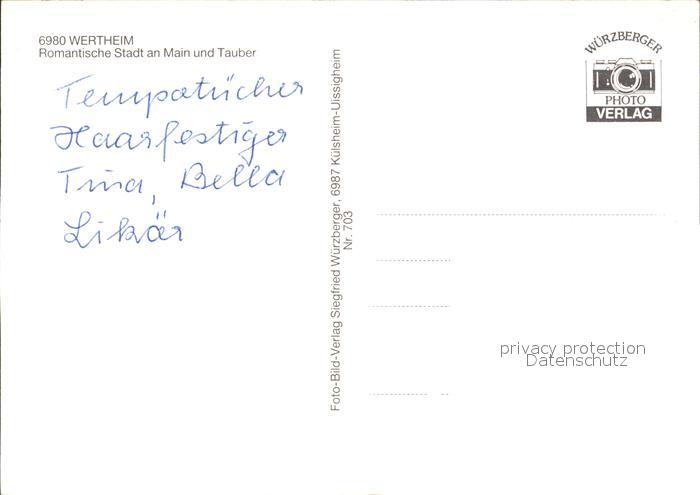 6980 WERTHEIM
Romantische Stadt an Main und Tauber
Tempotücher
Haarfestiger
Tina, Bella
Likör
Foto-Bild-Verlag Siegfried Würzberger, 6987 Külsheim-Uissigheim
Nr. 703
WÜRZBERGER
PHOTO
VERLAG
privacy protection
Datenschutz